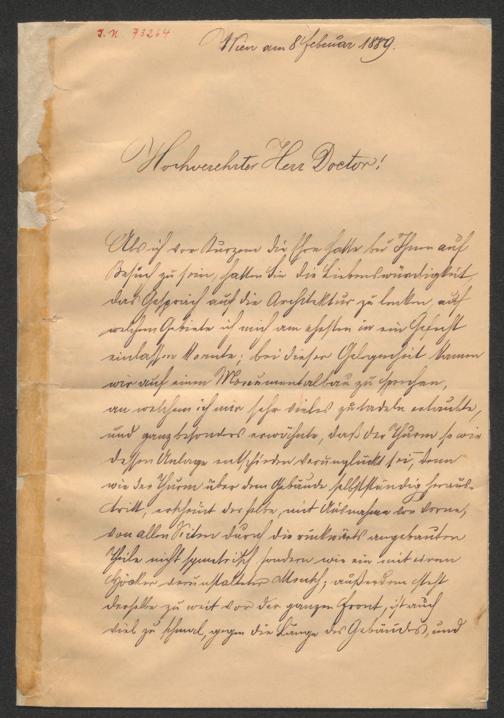 I. N. 73264
Wien am 8 Februar 1889.
Hochverehrter Herr Doctor!
Als ich vor Kurzem die Ehre hatte bei Ihnen auf
Besuch zu sein, hatten Sie die Liebenswürdigkeit
das Gespräch auf die Architektur zu lenken, auf
welchem Gebiete ich mich am ehesten in ein Gefecht
einlassen konnte; bei dieser Gelegenheit kamen
wir auf einen Monumentalbau zu sprechen,
an welchem ich mir sehr vieles zu tadeln erlaubte,
und ganz besonders erwähnte, daß der Thurm sowie
dessen Anlage entschieden verunglückt sei, denn
wie der Thurm über dem Gebäude selbstständig heraus-
tritt, erscheint derselbe, mit Ausnahme von vorne,
von allen Seiten durch die rückwärts angebauten
Theile nicht symetrisch sondern wie ein mit einem
Höcker verunstalteter Mensch; außerdem steht
derselbe zu weit vor der ganzen Front, ist auch
viel zu schmal, gegen die Länge des Gebäudes, und